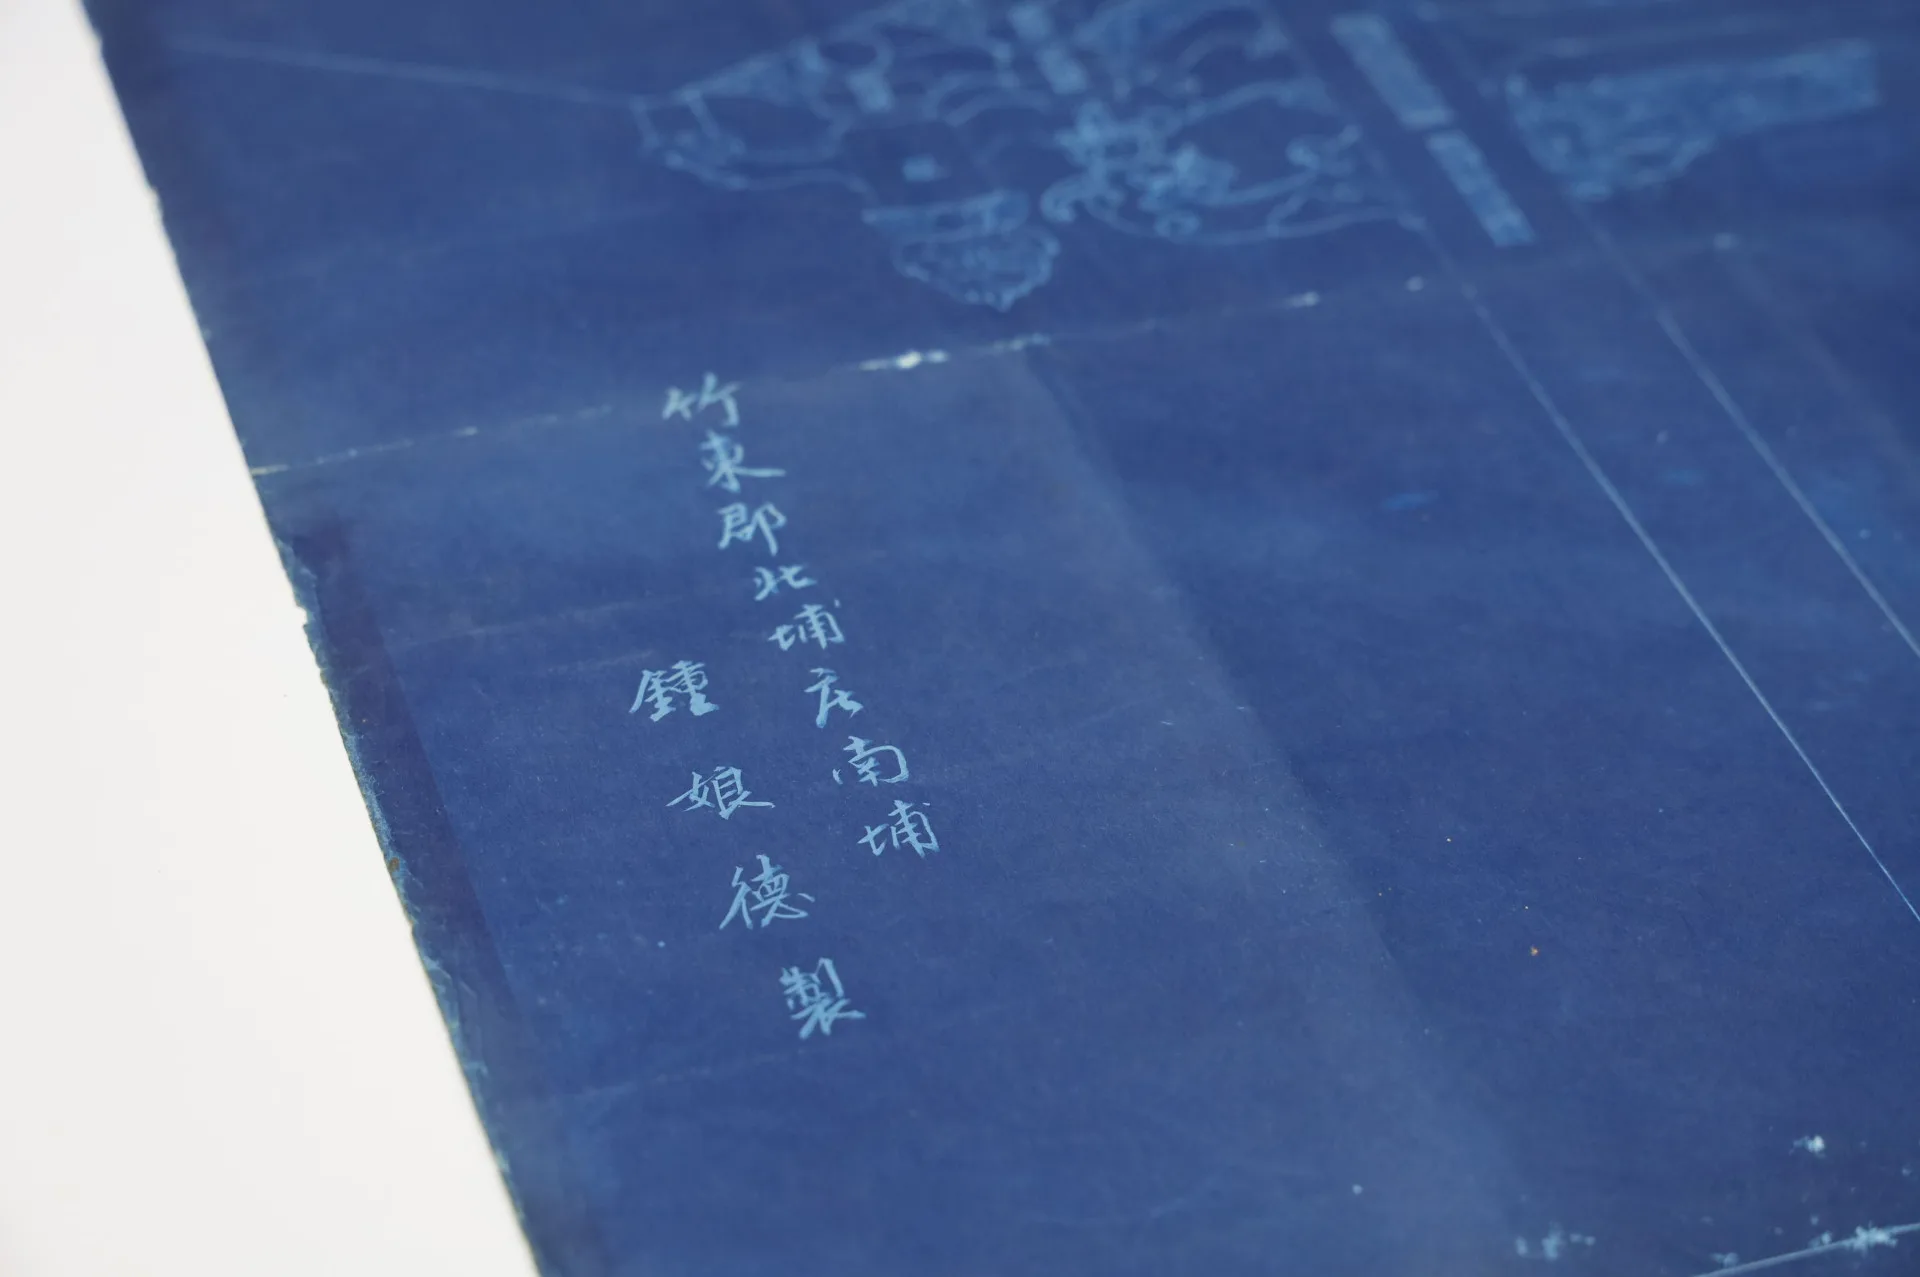 竹東郡北埔庄南埔
鍾娘德製